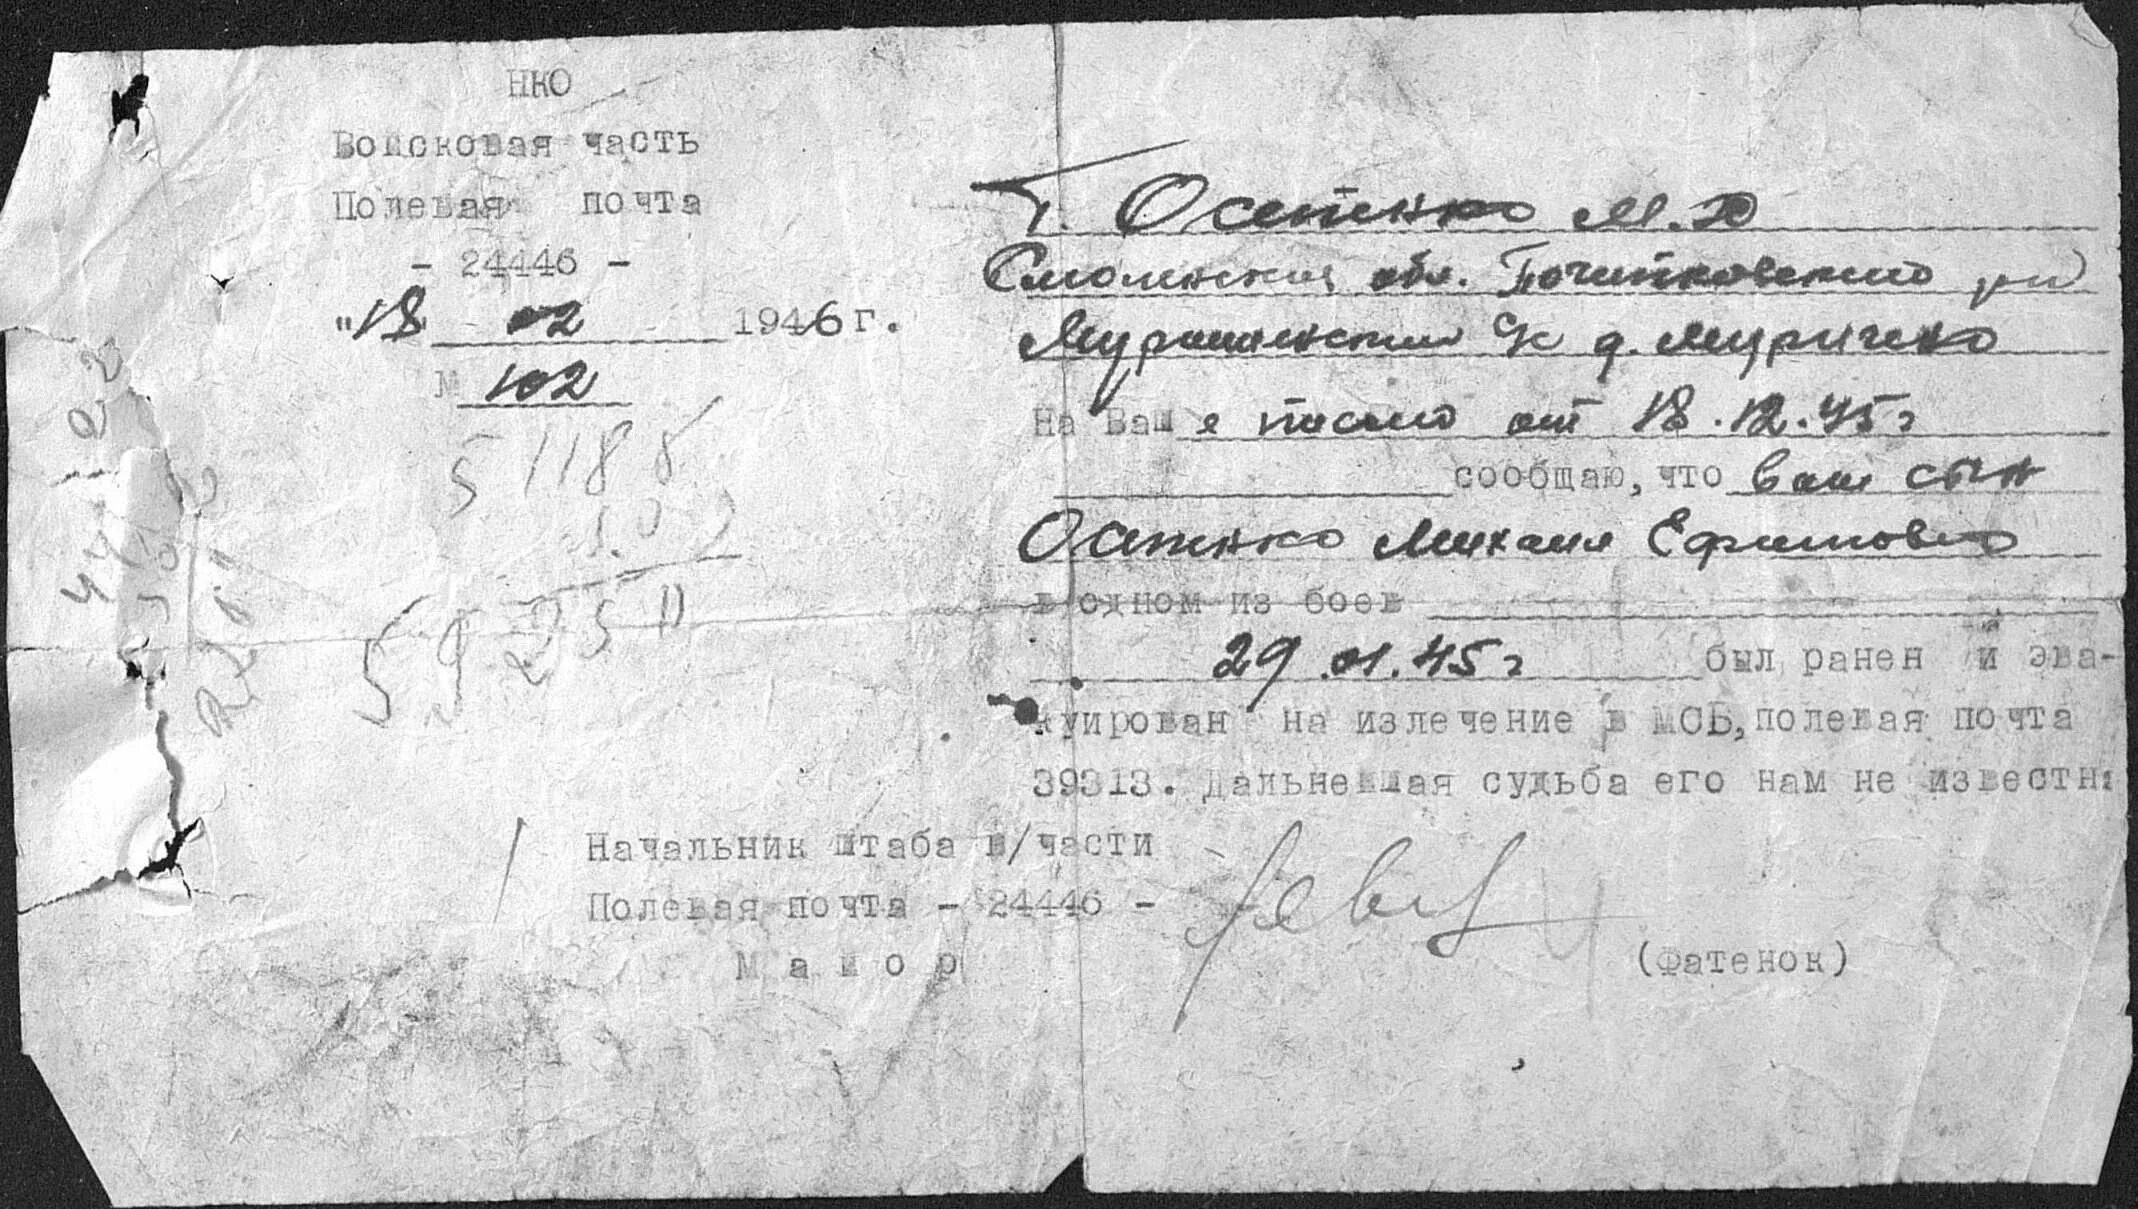 НКО
Войсковая часть
Полевая почта
- 24446 -
"18" 02 1946 г.
№ 102
5118 5
102
Т. Осипенко М.Ю
Смоленская обл. Починковского рн
с/с д. Муричено
На Ваш е письмо от 18.12.45 г
сообщаю, что ваш сын
Осипенко Михаил Ефимович
в одном из боев
29.01.45 г был ранен и эва-
куирован на излечение в МСБ, полевая почта
39313. Дальнейшая судьба его нам не известна
Начальник штаба в/части
Полевая почта - 24446 -
Майор
(Фатенок)